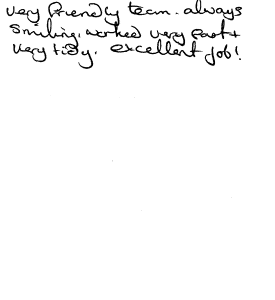 very friendly team. always
smiling, worked very fast +
very tidy. excellent job!